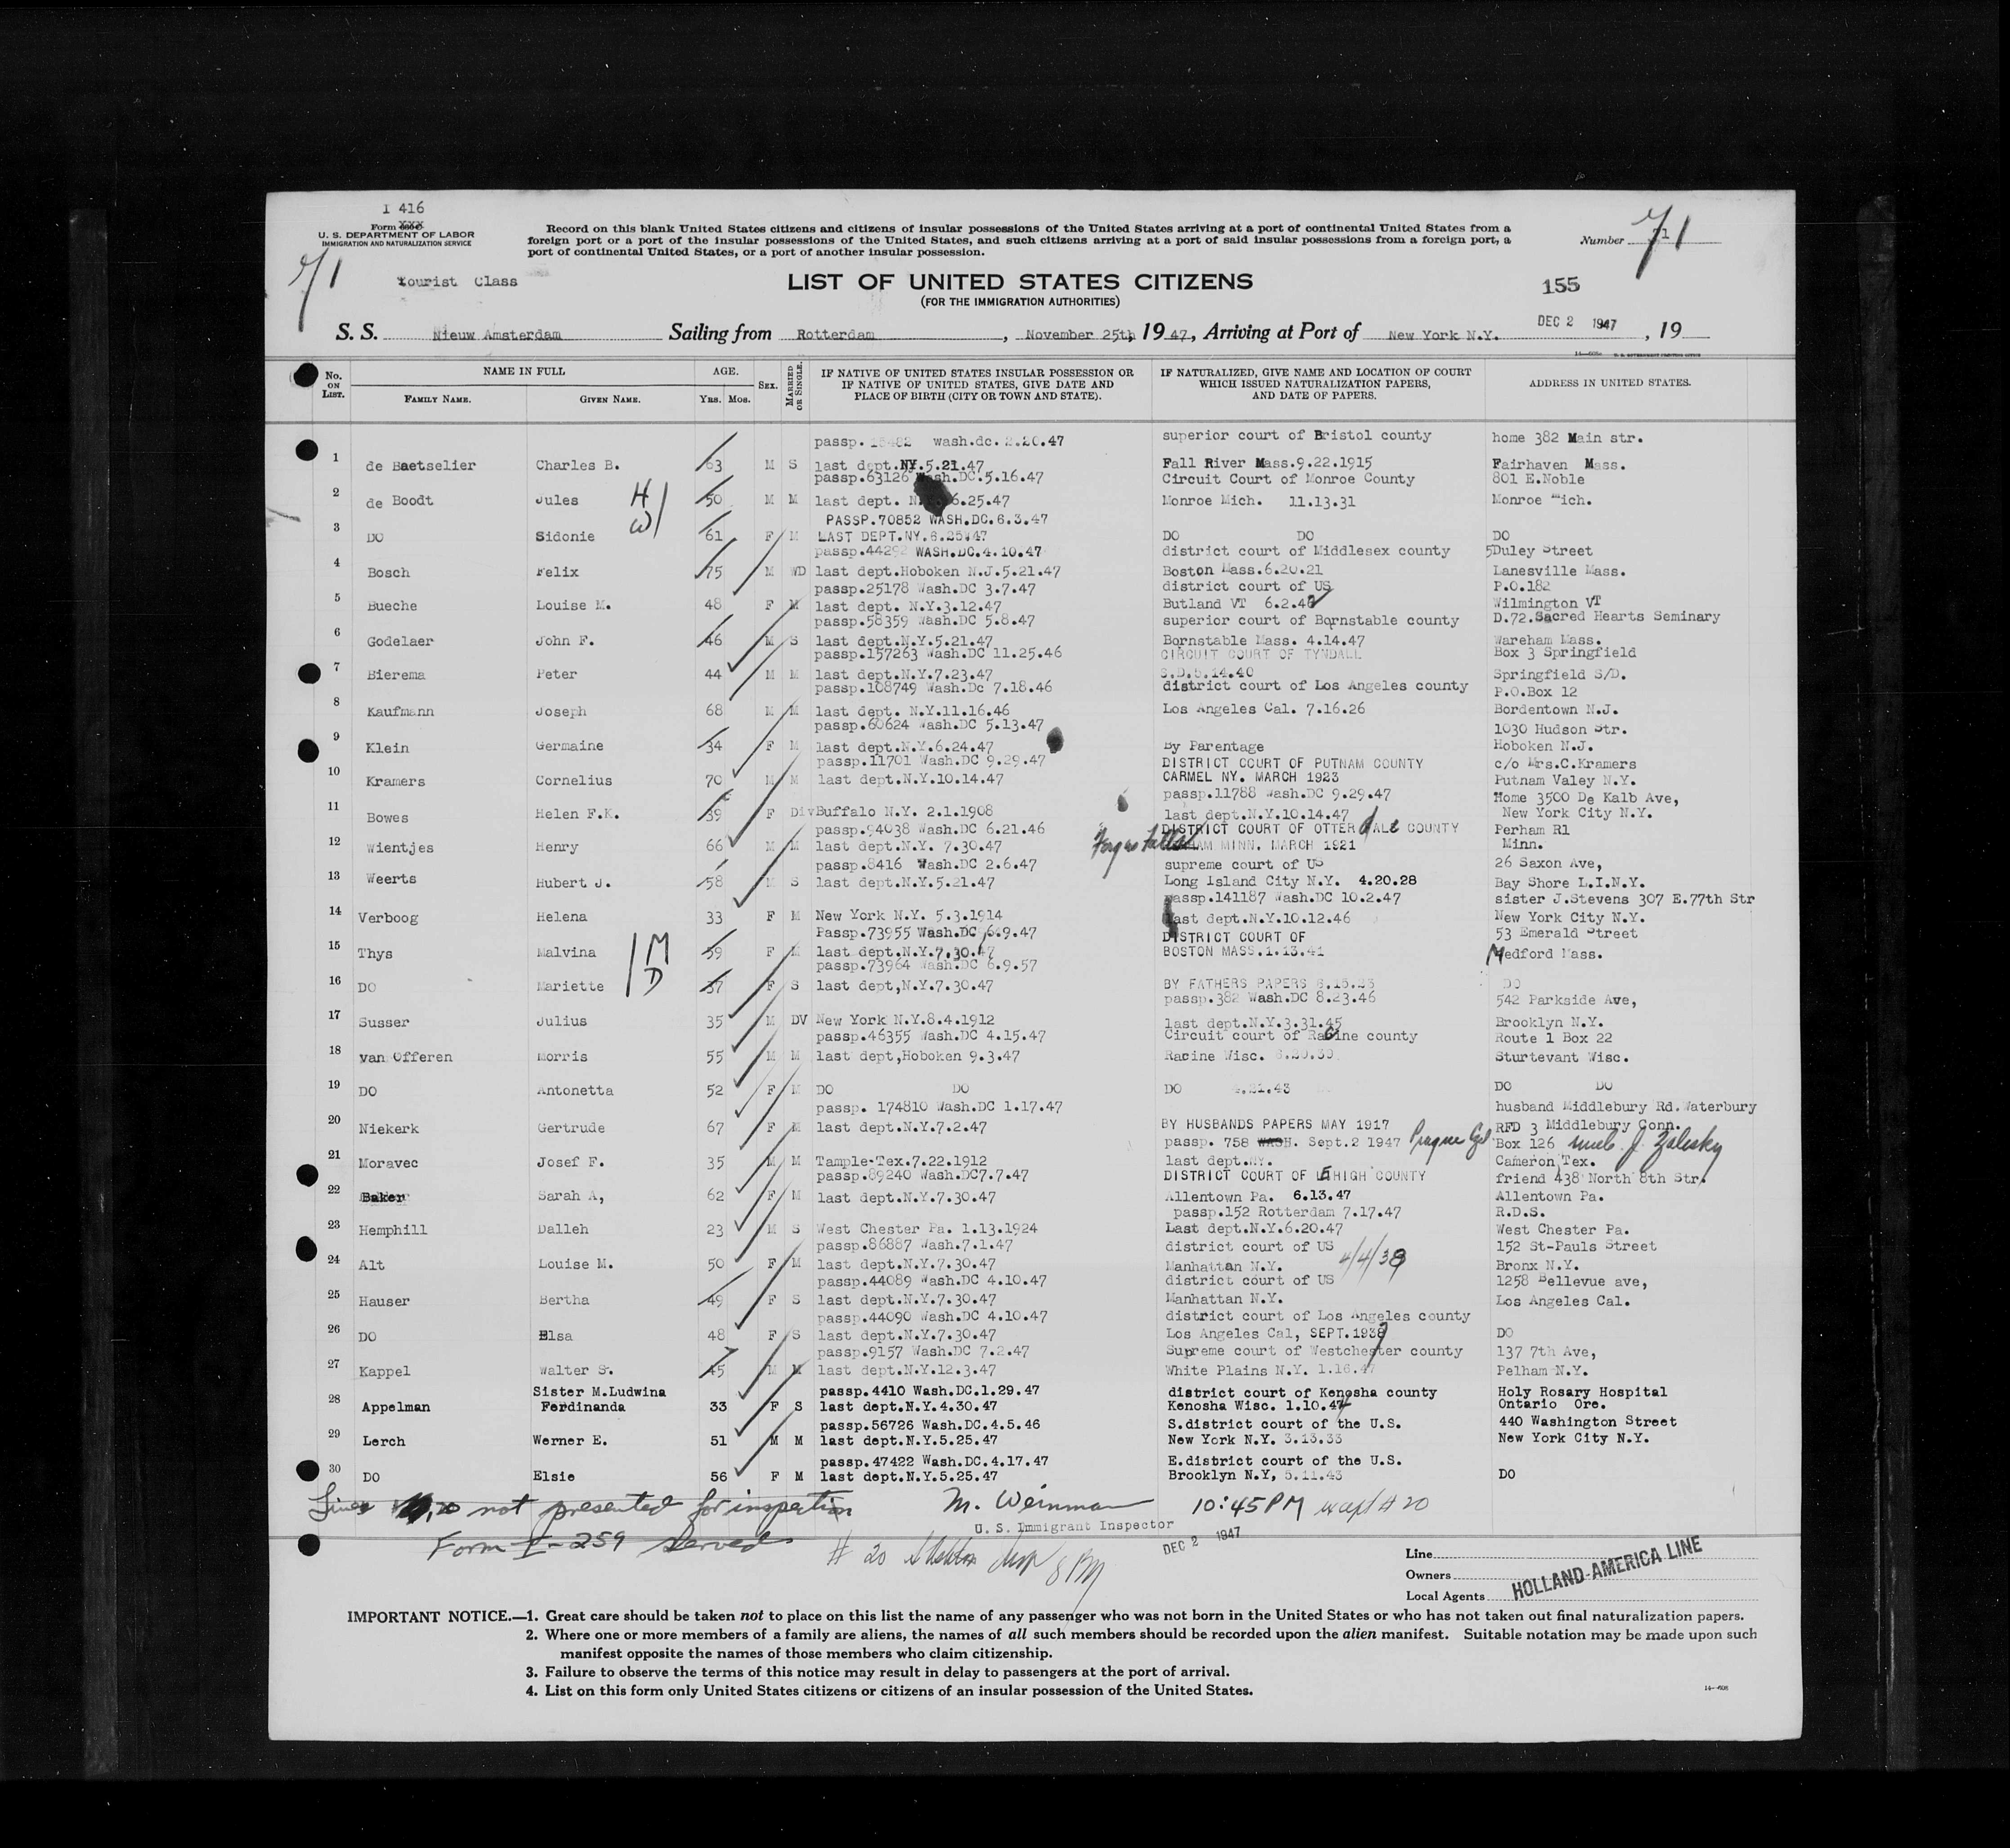 I 416
Form XXX
U. S. DEPARTMENT OF LABOR
IMMIGRATION AND NATURALIZATION SERVICE
Record on this blank United States citizens and citizens of insular possessions of the United States arriving at a port of continental United States from a
foreign port or a port of the insular possessions of the United States, and such citizens arriving at a port of said insular possessions from a foreign port, a
port of continental United States, or a port of another insular possession.
Number 71
71
tourist Class
LIST OF UNITED STATES CITIZENS
(FOR THE IMMIGRATION AUTHORITIES)
155
S. S. Nieuw Amsterdam Sailing from Rotterdam, November 25th, 19 47, Arriving at Port of New York N.Y. DEC 2 1947, 19
No. ON LIST. NAME IN FULL FAMILY NAME. GIVEN NAME. AGE. YRS. MOS. SEX. MARRIED OR SINGLE.
IF NATIVE OF UNITED STATES INSULAR POSSESSION OR
IF NATIVE OF UNITED STATES, GIVE DATE AND
PLACE OF BIRTH (CITY OR TOWN AND STATE).
IF NATURALIZED, GIVE NAME AND LOCATION OF COURT
WHICH ISSUED NATURALIZATION PAPERS,
AND DATE OF PAPERS.
ADDRESS IN UNITED STATES.
passp. wash.dc. 2.20.47 superior court of Bristol county home 382 Main str.
1 de Baetselier Charles B. 63 M S last dept.NY.5.21.47 Fall River Mass.9.22.1915 Fairhaven Mass.
passp.63126 Wash.DC.5.16.47 Circuit Court of Monroe County 801 E.Noble
2 de Boodt Jules H 50 M M last dept. N.Y. 6.25.47 Monroe Mich. 11.13.31 Monroe Mich.
PASSP.70852 WASH.DC.6.3.47
3 DO Sidonie W 61 F M LAST DEPT.NY.6.25.47 DO DO DO
passp.44292 WASH.DC.4.10.47 district court of Middlesex county 5Duley Street
4 Bosch Felix 75 M WD last dept.Hoboken N.J.5.21.47 Boston Mass.6.20.21 Lanesville Mass.
passp.25178 Wash.DC 3.7.47 district court of US P.O.182
5 Bueche Louise M. 48 F M last dept. N.Y.3.12.47 Butland VT 6.2.42 Wilmington VT
passp.58359 Wash.DC 5.8.47 superior court of Bornstable county D.72.Sacred Hearts Seminary
6 Godelaer John F. 46 M S last dept.N.Y.5.21.47 Bornstable Mass. 4.14.47 Wareham Mass.
passp.157263 Wash.DC 11.25.46 CIRCUIT COURT OF TYNDALL Box 3 Springfield
7 Bierema Peter 44 M M last dept.N.Y.7.23.47 S.D.5.14.40 Springfield S/D.
passp.108749 Wash.Dc 7.18.46 district court of Los Angeles county P.O.Box 12
8 Kaufmann Joseph 68 M M last dept. N.Y.11.16.46 Los Angeles Cal. 7.16.26 Bordentown N.J.
passp.60624 Wash.DC 5.13.47 1030 Hudson Str.
9 Klein Germaine 34 F M last dept.N.Y.6.24.47 By Parentage Hoboken N.J.
passp.11701 Wash.DC 9.29.47 DISTRICT COURT OF PUTNAM COUNTY c/o Mrs.C.Kramers
10 Kramers Cornelius 70 M M last dept.N.Y.10.14.47 CARMEL NY. MARCH 1923 Putnam Valey N.Y.
passp.11788 Wash.DC 9.29.47 Home 3500 De Kalb Ave,
11 Bowes Helen F.K. 39 F Div Buffalo N.Y. 2.1.1908 last dept.N.Y.10.14.47 New York City N.Y.
passp.94038 Wash.DC 6.21.46 DISTRICT COURT OF OTTER COUNTY Perham R1
12 Wientjes Henry 66 M M last dept.N.Y. 7.30.47 Fergus Falls MINN. MARCH 1921 Minn.
passp.8416 Wash.DC 2.6.47 supreme court of US 26 Saxon Ave,
13 Weerts Hubert J. 58 M S last dept.N.Y.5.21.47 Long Island City N.Y. 4.20.28 Bay Shore L.I.N.Y.
passp.141187 Wash.DC 10.2.47 sister J.Stevens 307 E.77th Str
14 Verboog Helena 33 F M New York N.Y. 5.3.1914 last dept.N.Y.10.12.46 New York City N.Y.
Passp.73955 Wash.DC 6.9.47 DISTRICT COURT OF 53 Emerald Street
15 Thys Malvina M 59 F M last dept.N.Y.7.30.47 BOSTON MASS.1.13.41 Medford Mass.
passp.73964 Wash.DC 6.9.57
16 DO Mariette D 37 F S last dept,N.Y.7.30.47 BY FATHERS PAPERS DO
passp.382 Wash.DC 8.23.46 542 Parkside Ave,
17 Susser Julius 35 M DV New York N.Y.8.4.1912 last dept.N.Y.3.31.45 Brooklyn N.Y.
passp.46355 Wash.DC 4.15.47 Circuit court of Racine county Route 1 Box 22
18 van Offeren Morris 55 M M last dept,Hoboken 9.3.47 Racine Wisc. Sturtevant Wisc.
19 DO Antonetta 52 F M DO DO DO 4.21.43 DO DO
passp. 174810 Wash.DC 1.17.47 husband Middlebury Rd.Waterbury
20 Niekerk Gertrude 67 F M last dept.N.Y.7.2.47 BY HUSBANDS PAPERS MAY 1917 RFD 3 Middlebury Conn.
passp. 758 WASH. Sept.2 1947 Prague Box 126 J. Zalesky
21 Moravec Josef F. 35 M M Tample-Tex.7.22.1912 last dept.NY. Cameron Tex.
passp.89240 Wash.DC7.7.47 DISTRICT COURT OF LEHIGH COUNTY friend 438 North 8th Str.
22 Baker Sarah A, 62 F M last dept.N.Y.7.30.47 Allentown Pa. 6.13.47 Allentown Pa.
passp.152 Rotterdam 7.17.47 R.D.S.
23 Hemphill Dalleh 23 M S West Chester Pa. 1.13.1924 Last dept.N.Y.6.20.47 West Chester Pa.
passp.86887 Wash.7.1.47 district court of US 152 St-Pauls Street
24 Alt Louise M. 50 F M last dept.N.Y.7.30.47 Manhattan N.Y. 4/4/38 Bronx N.Y.
passp.44089 Wash.DC 4.10.47 district court of US 1258 Bellevue ave,
25 Hauser Bertha 49 F S last dept.N.Y.7.30.47 Manhattan N.Y. Los Angeles Cal.
passp.44090 Wash.DC 4.10.47 district court of Los Angeles county
26 DO Elsa 48 F S last dept.N.Y.7.30.47 Los Angeles Cal, SEPT.1937 DO
passp.9157 Wash.DC 7.2.47 Supreme court of Westchester county 137 7th Ave,
27 Kappel Walter S. 45 M M last dept.N.Y.12.3.47 White Plains N.Y. 1.16.47 Pelham N.Y.
Sister M.Ludwina passp.4410 Wash.DC.1.29.47 district court of Kenosha county Holy Rosary Hospital
28 Appelman Ferdinanda 33 F S last dept.N.Y.4.30.47 Kenosha Wisc. 1.10.44 Ontario Ore.
passp.56726 Wash.DC.4.5.46 S.district court of the U.S. 440 Washington Street
29 Lerch Werner E. 51 M M last dept.N.Y.5.25.47 New York N.Y. 3.13.33 New York City N.Y.
passp.47422 Wash.DC.4.17.47 E.district court of the U.S.
30 DO Elsie 56 F M last dept.N.Y.5.25.47 Brooklyn N.Y, 5.11.43 DO
Lines , 20 not presented for inspection M. Weinman 10:45 PM except # 20
U. S. Immigrant Inspector
Form I-259 served # 20 8 PM DEC 2 1947
Line
Owners
Local Agents HOLLAND-AMERICA LINE
IMPORTANT NOTICE.—1. Great care should be taken not to place on this list the name of any passenger who was not born in the United States or who has not taken out final naturalization papers.
2. Where one or more members of a family are aliens, the names of all such members should be recorded upon the alien manifest. Suitable notation may be made upon such
manifest opposite the names of those members who claim citizenship.
3. Failure to observe the terms of this notice may result in delay to passengers at the port of arrival.
4. List on this form only United States citizens or citizens of an insular possession of the United States.